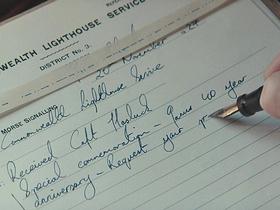 WEALTH LIGHTHOUSE SERVICE
DISTRICT No. 3.
20 November
MORSE SIGNALLING
Commonwealth Lighthouse Service
Received Capt Hasluck
Special commemoration - Janus 40 year
anniversary - Request your